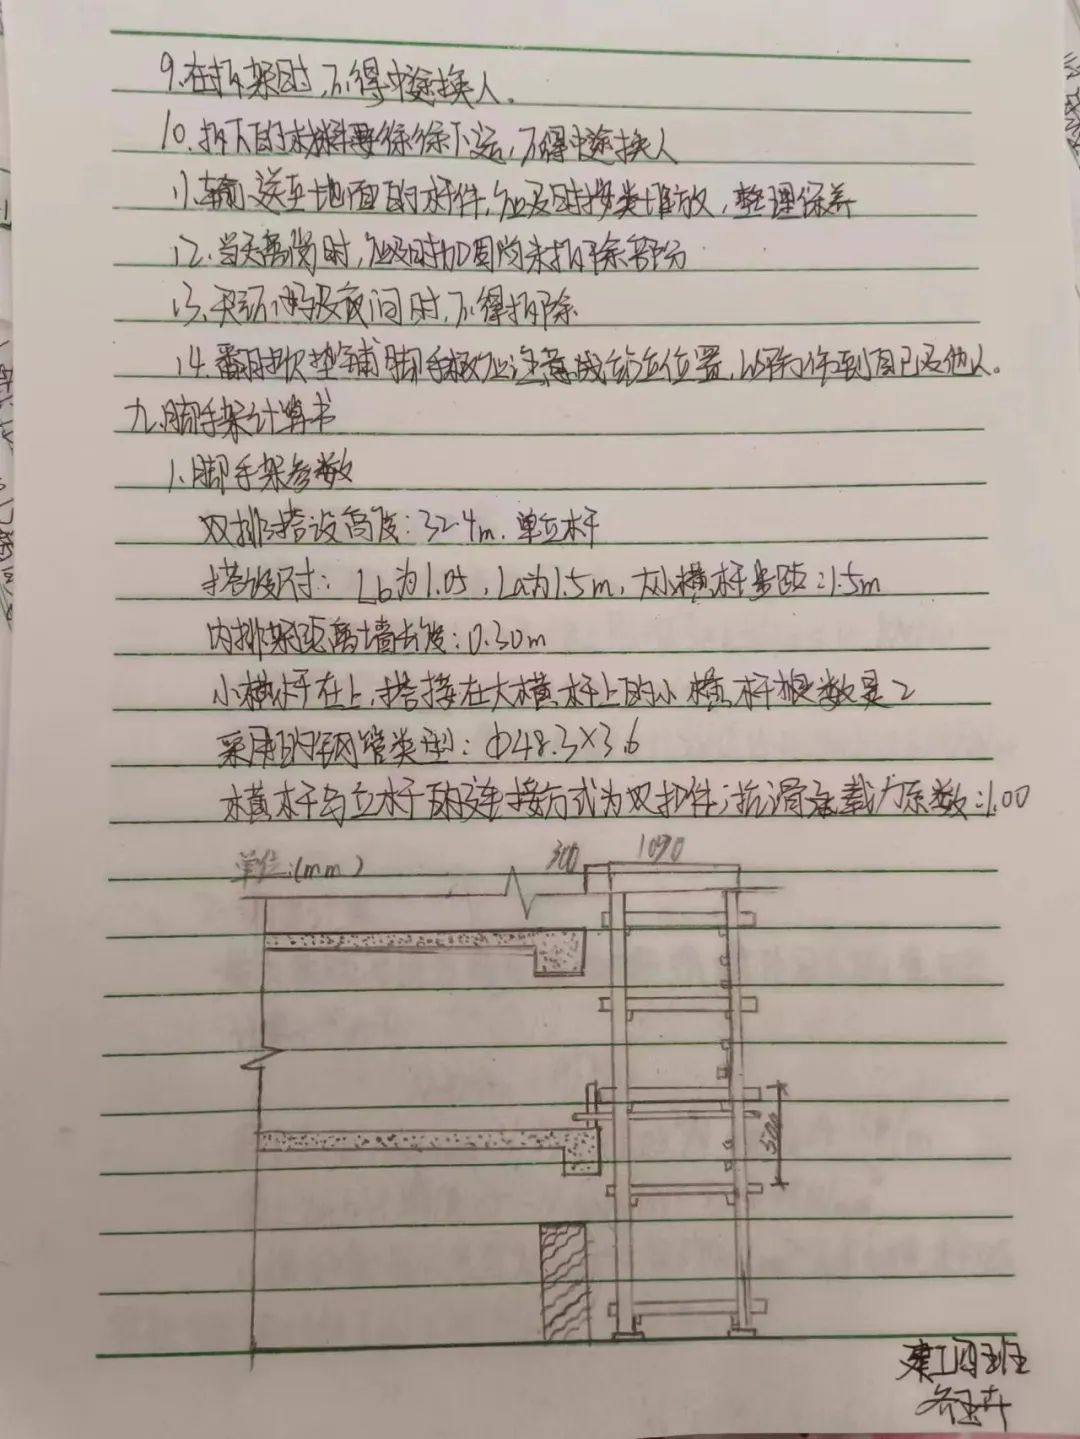 9.在拆架时,不得中途换人。
10.拆下的材料要徐徐下运,不得中途换人
11.输送至地面的杆件,应及时按类堆放,整理保养
12.当天离岗时,应及时加固尚未拆除部分
13.天气不好及夜间时,不得拆除
14.翻时软垫铺脚手板应注意站立位置,以免伤到自己及他人。
九.脚手架计算书
1.脚手架参数
双排搭设高度:32.4m.单立杆
搭设尺寸:Lb为1.05,La为1.5m,大小横杆步距:1.5m
内排架距离墙长度:0.30m
小横杆在上,搭接在大横杆上的小横杆根数是2
采用的钢管类型:Φ48.3×3.6
横杆与立杆的连接方式为双扣件;抗滑承载力系数:1.00
单位:(mm) 300 1090
建工四班